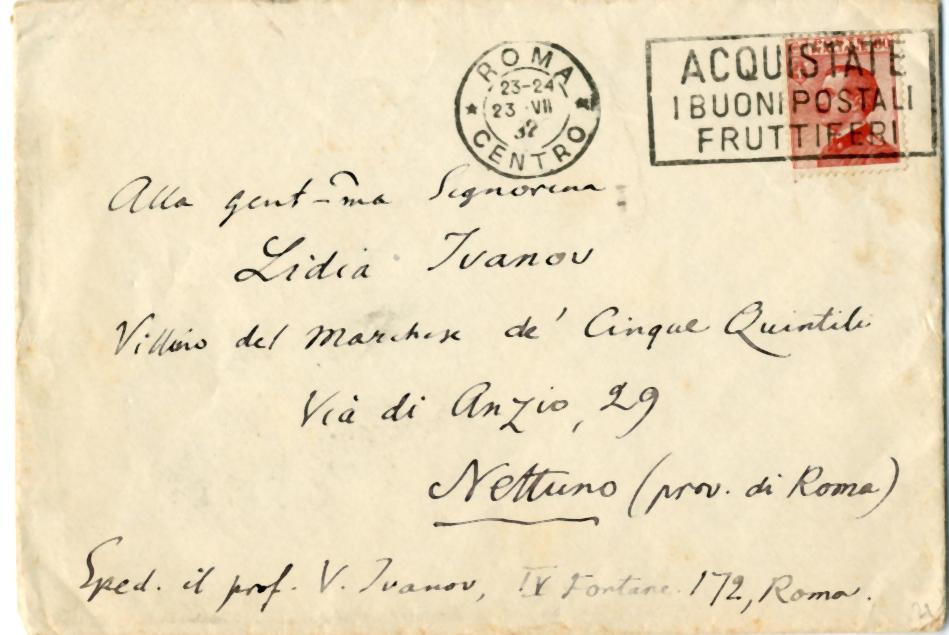 ROMA
23-24
23 VII
32
CENTRO
ACQUISTATE
I BUONI POSTALI
FRUTTIFERI
Alla gent-m̄a Signorina
Lidia Ivanov
Villino del Marchese de' Cinque Quintili
Via di Anzio, 29
Nettuno (prov. di Roma)
Sped. il prof. V. Ivanov, IV Fontane 172, Roma.